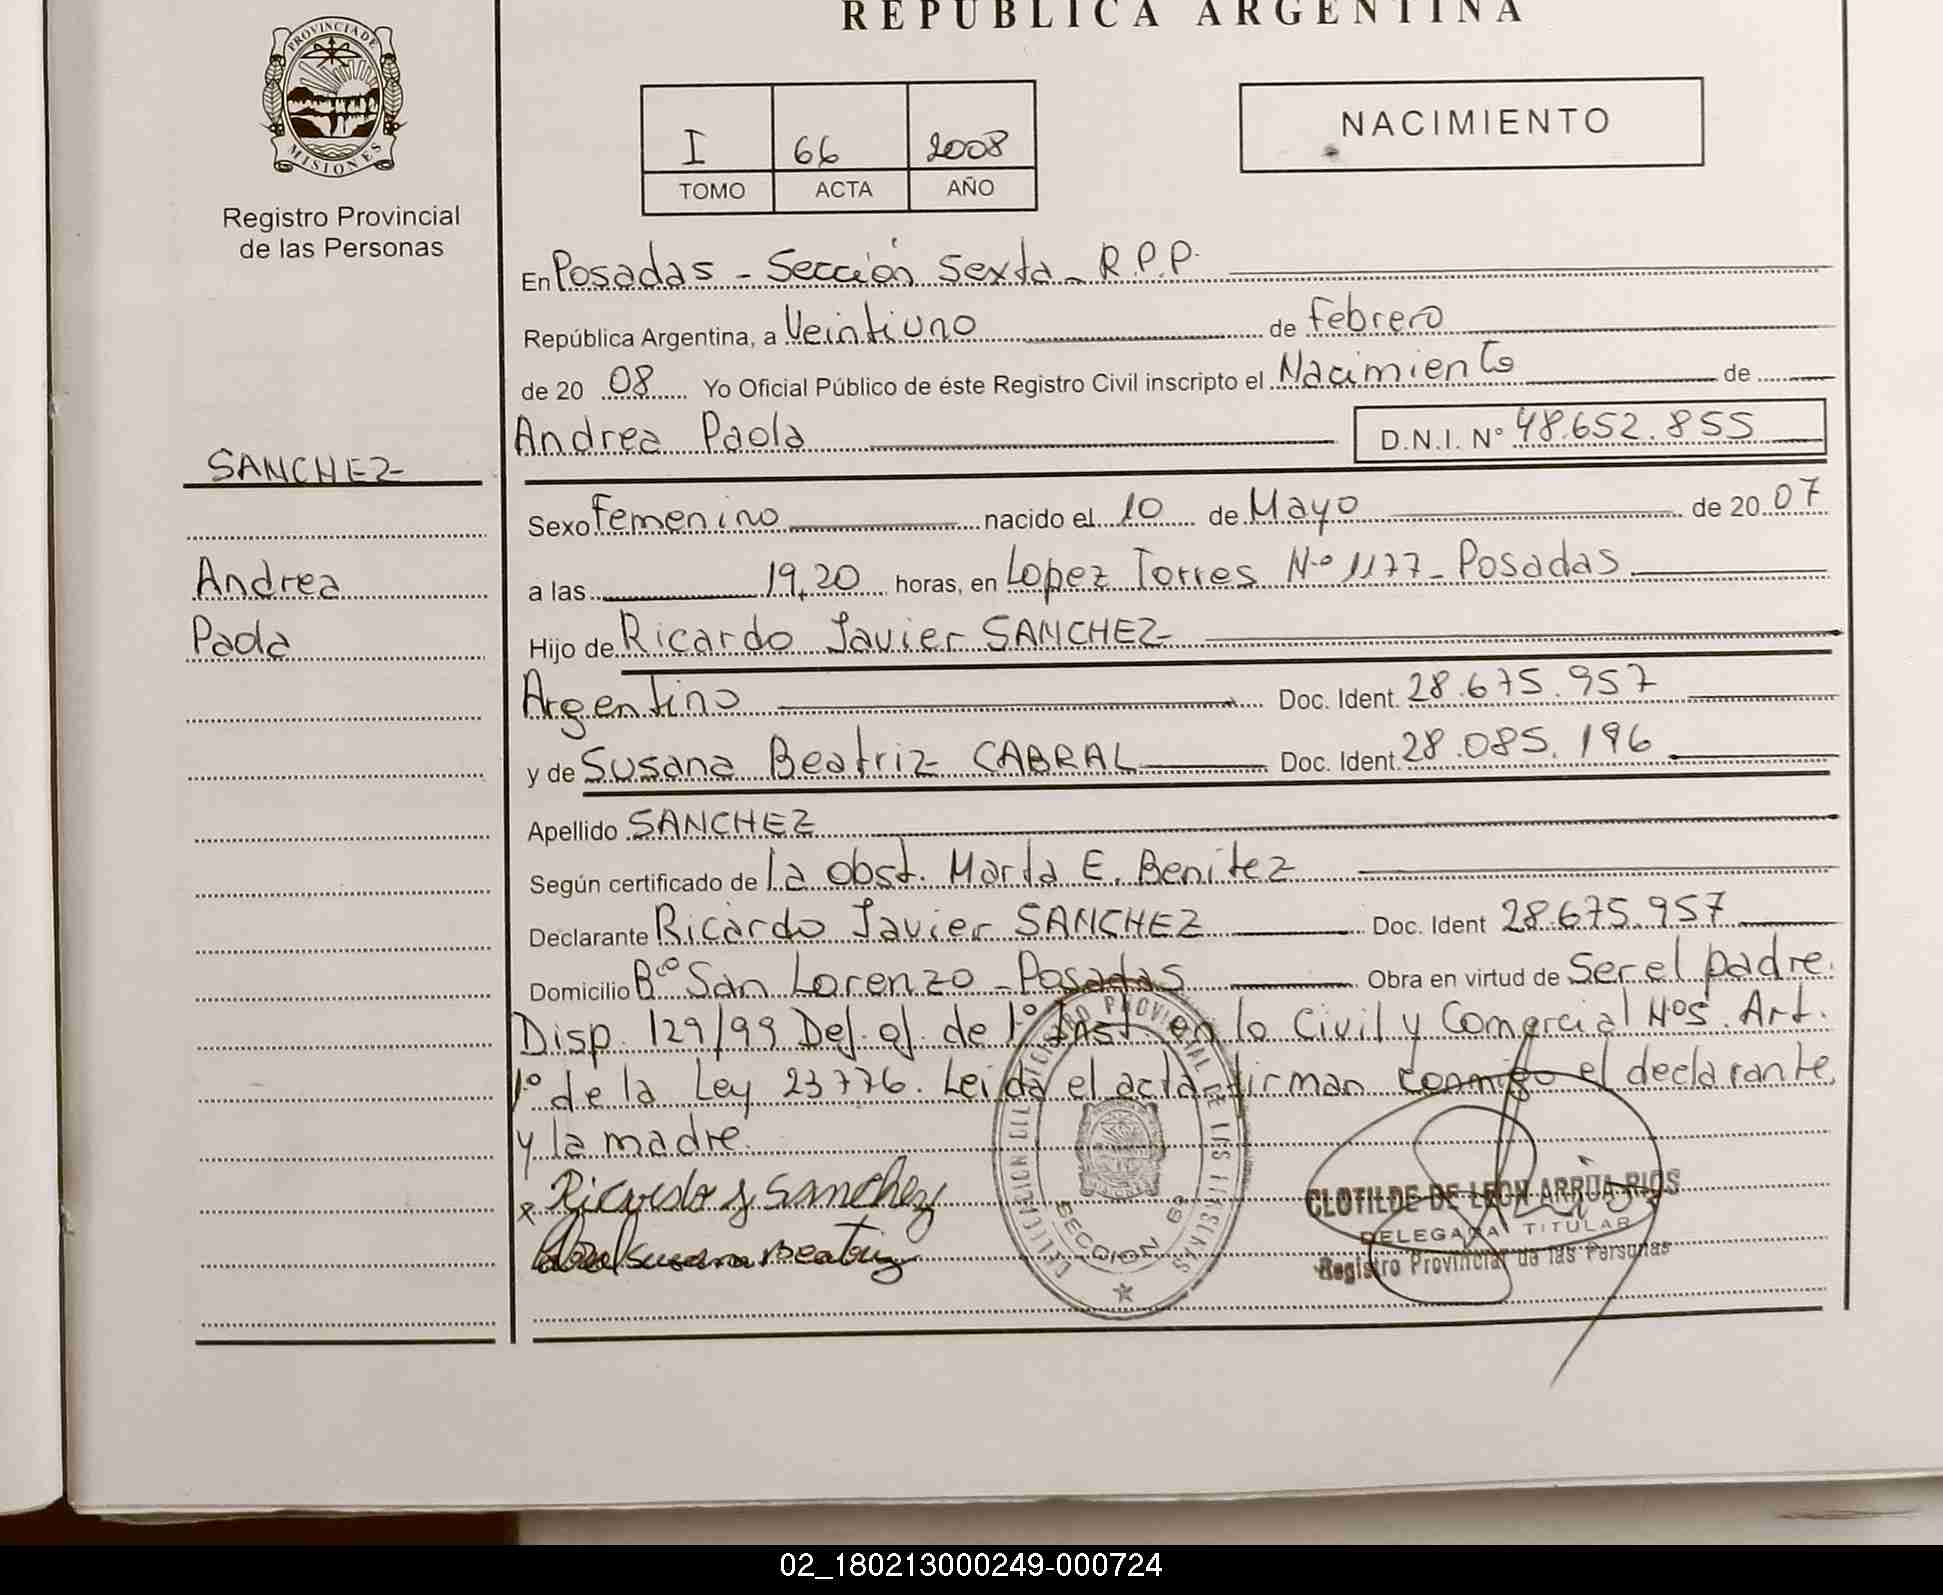 REPUBLICA ARGENTINA
PROVINCIA DE
MISIONES
Registro Provincial
de las Personas
I 66 2008
TOMO ACTA AÑO
NACIMIENTO
En Posadas - Sección Sexta - R.P.P.
República Argentina, a Veintiuno de Febrero
de 20 08 Yo Oficial Público de éste Registro Civil inscripto el Nacimiento de
Andrea Paola D.N.I. N° 48.652.855
SANCHEZ
Andrea
Paola
Sexo Femenino nacido el 10 de Mayo de 20 07
a las 19,20 horas, en Lopez Torres Nº 1177 - Posadas
Hijo de Ricardo Javier SANCHEZ
Argentino Doc. Ident. 28.675.957
y de Susana Beatriz CABRAL Doc. Ident. 28.085.196
Apellido SANCHEZ
Según certificado de la obst. Marta E. Benitez
Declarante Ricardo Javier SANCHEZ Doc. Ident 28.675.957
Domicilio Bº San Lorenzo - Posadas Obra en virtud de Ser el padre.
Disp. 129/99 Def. of. de 1º Inst en lo Civil y Comercial Nos. Art.
1º de la Ley 23776. Leida el acta firman conmigo el declarante
y la madre.
Ricardo J Sanchez
Cabral Susana Beatriz
DELEGACION DEL REGISTRO PROVINCIAL DE LAS PERSONAS
SECCION 6ª
CLOTILDE DE LEON ARRÚA RIOS
DELEGADA TITULAR
Registro Provincial de las Personas
02_180213000249-000724